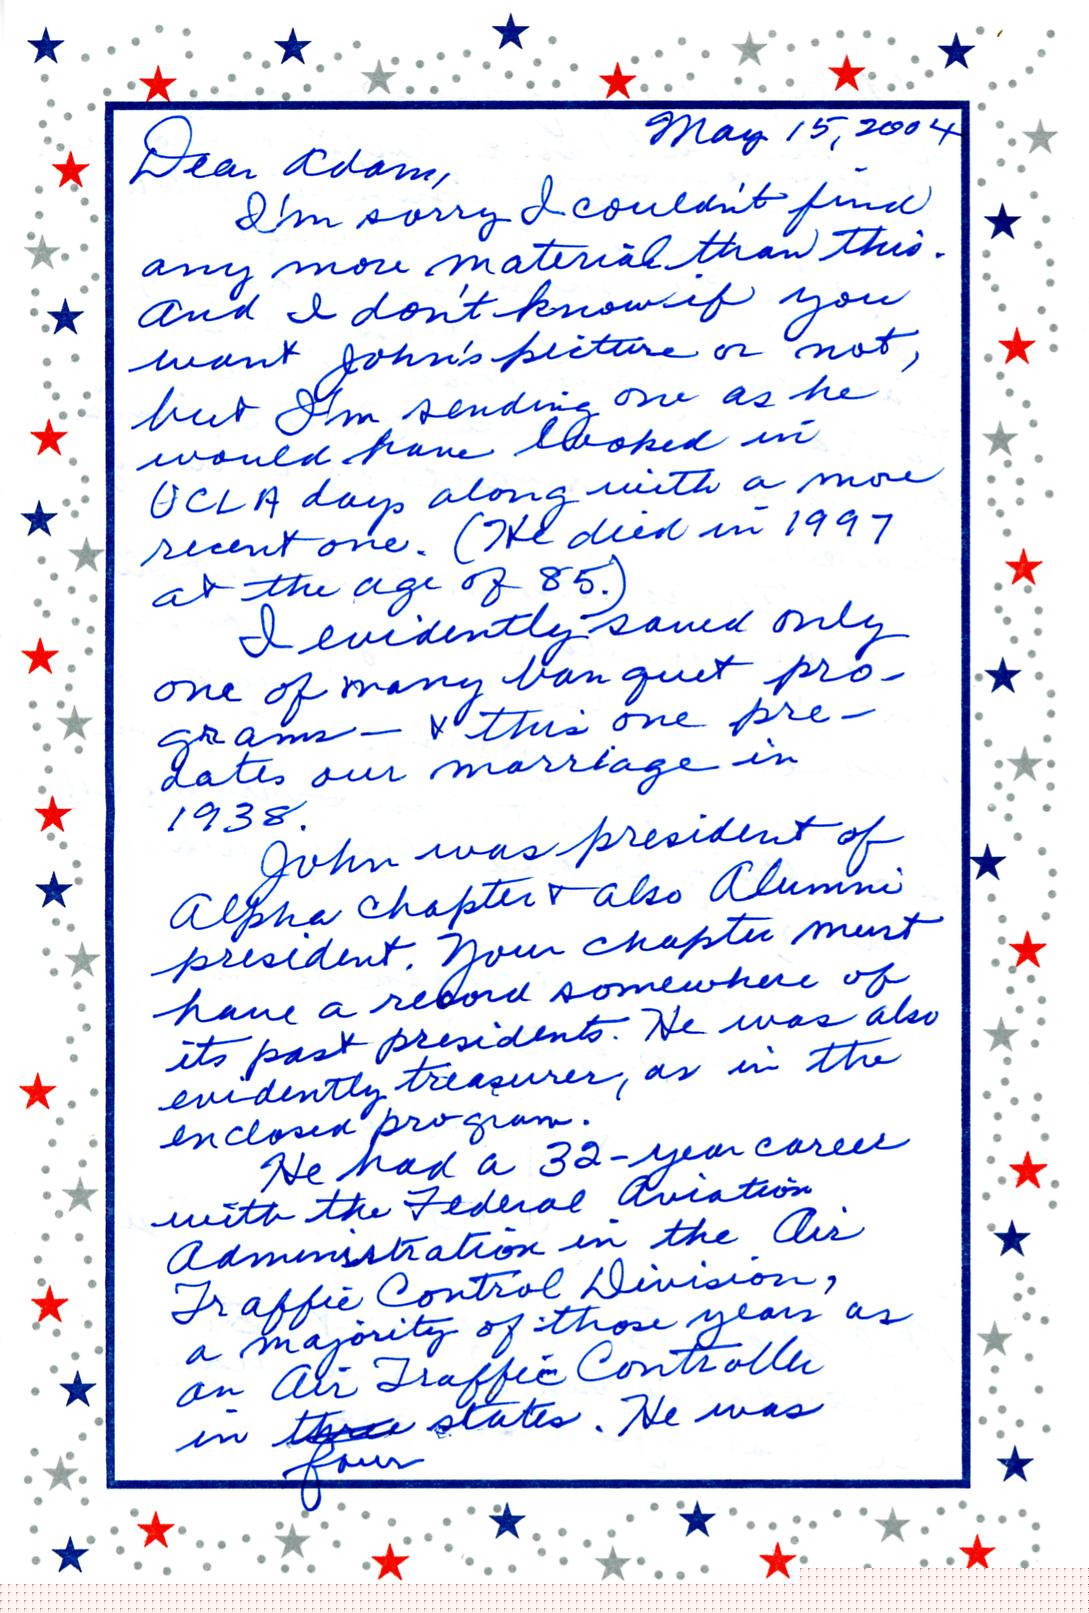 May 15, 2004
Dear Adam,
I'm sorry I couldn't find
any more material than this.
And I don't know if you
want John's picture or not,
but I'm sending one as he
would have looked in
UCLA days along with a more
recent one. (He died in 1997
at the age of 85.)
I evidently saved only
one of many banquet pro-
grams — & this one pre-
dates our marriage in
1938.
John was president of
Alpha chapter & also Alumni
president. Your chapter must
have a record somewhere of
its past presidents. He was also
evidently treasurer, as in the
enclosed program.
He had a 32-year career
with the Federal Aviation
Administration in the Air
Traffic Control Division,
a majority of those years as
an Air Traffic Controller
in three states. He was
four